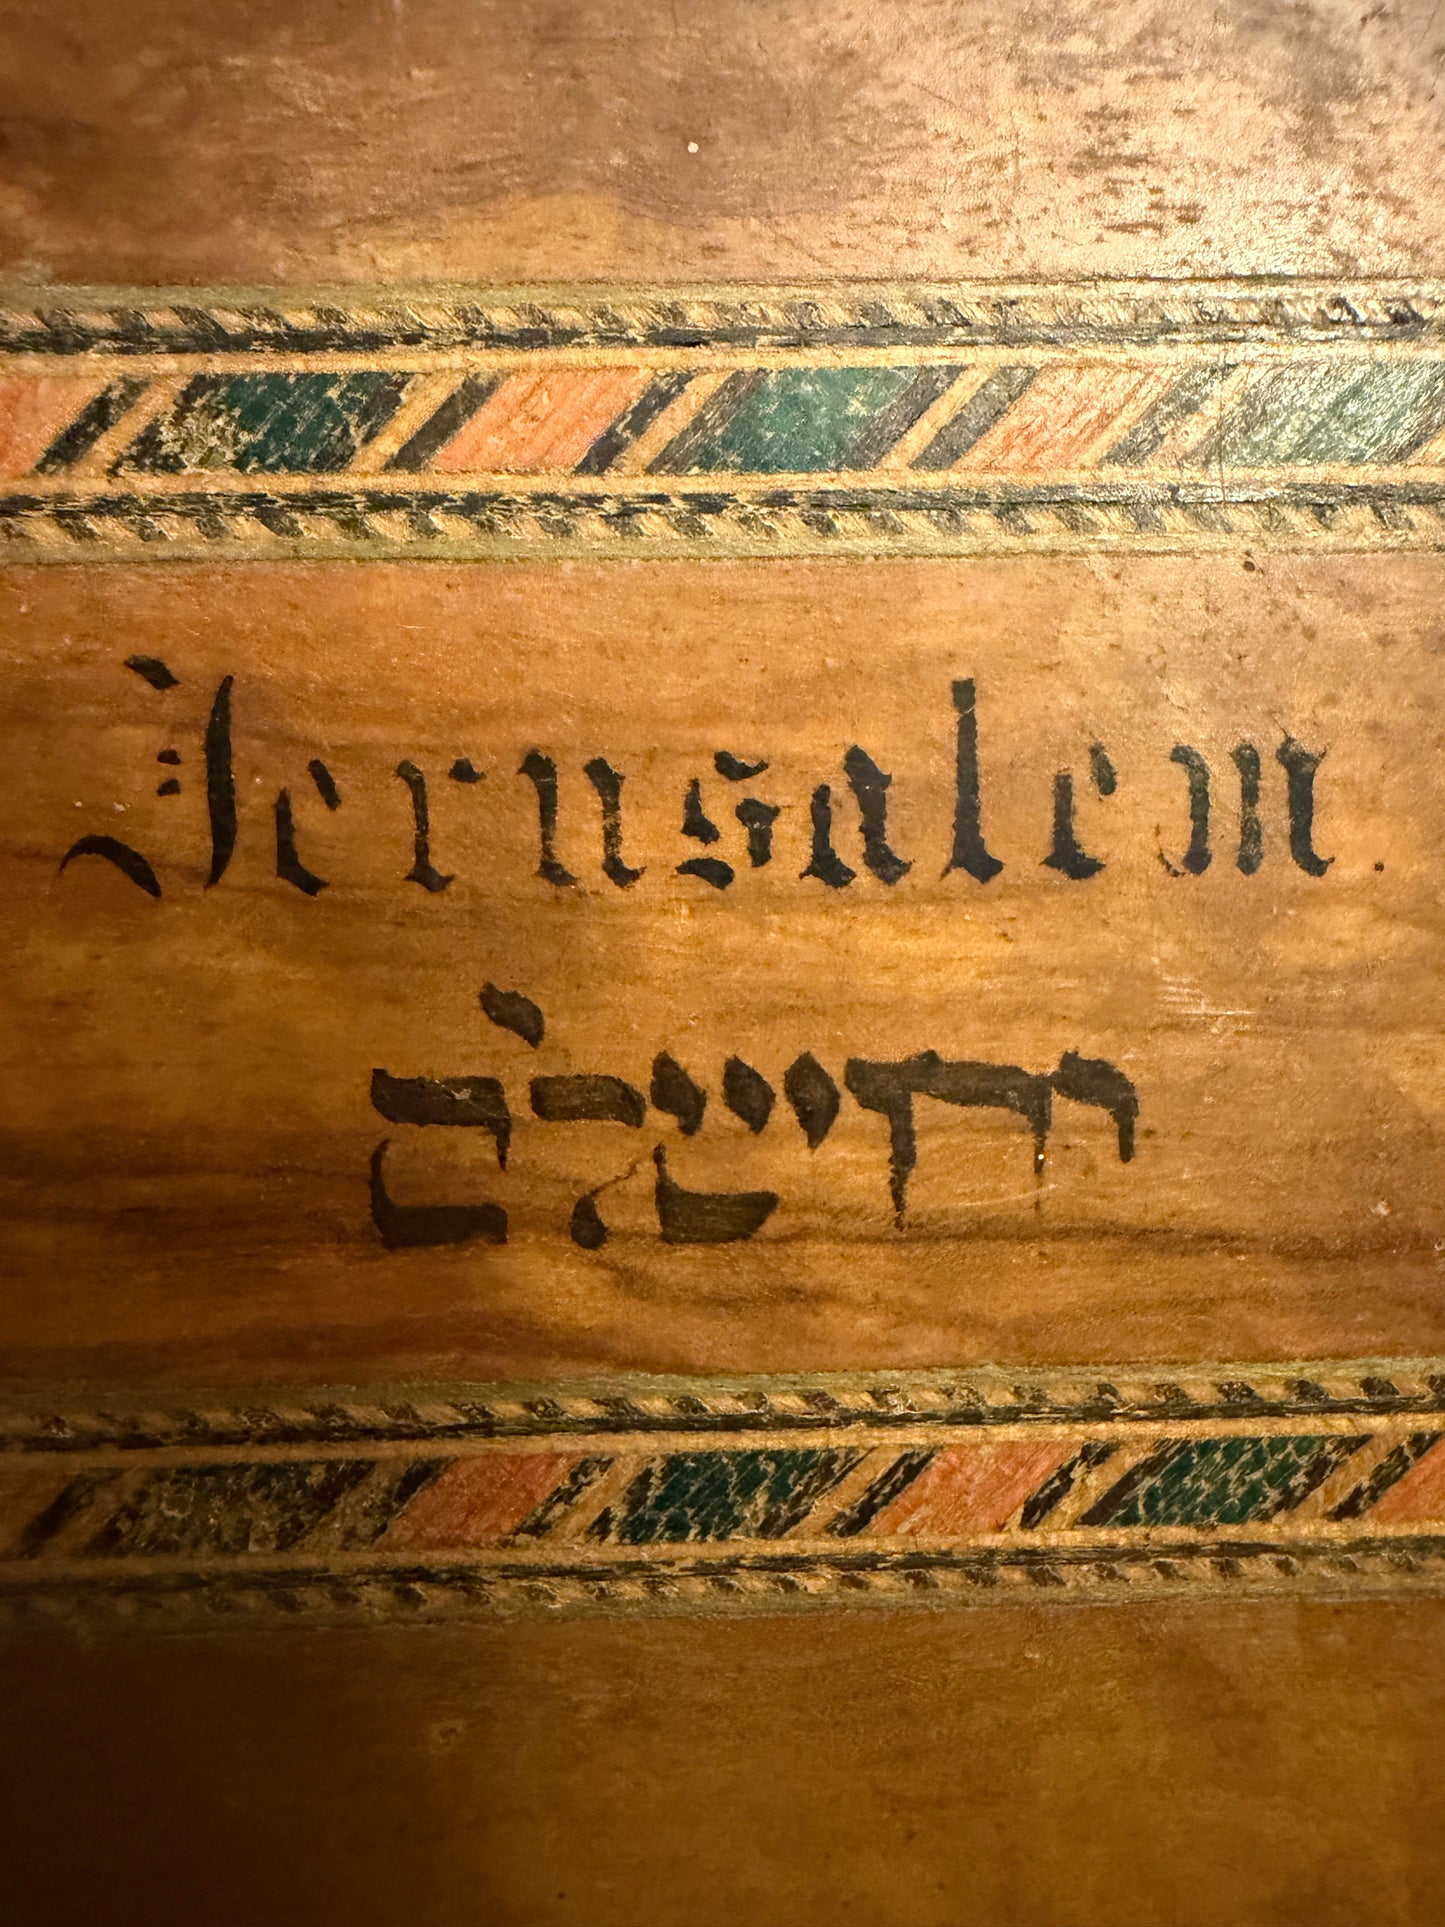 Jerusalem.
ירושלם